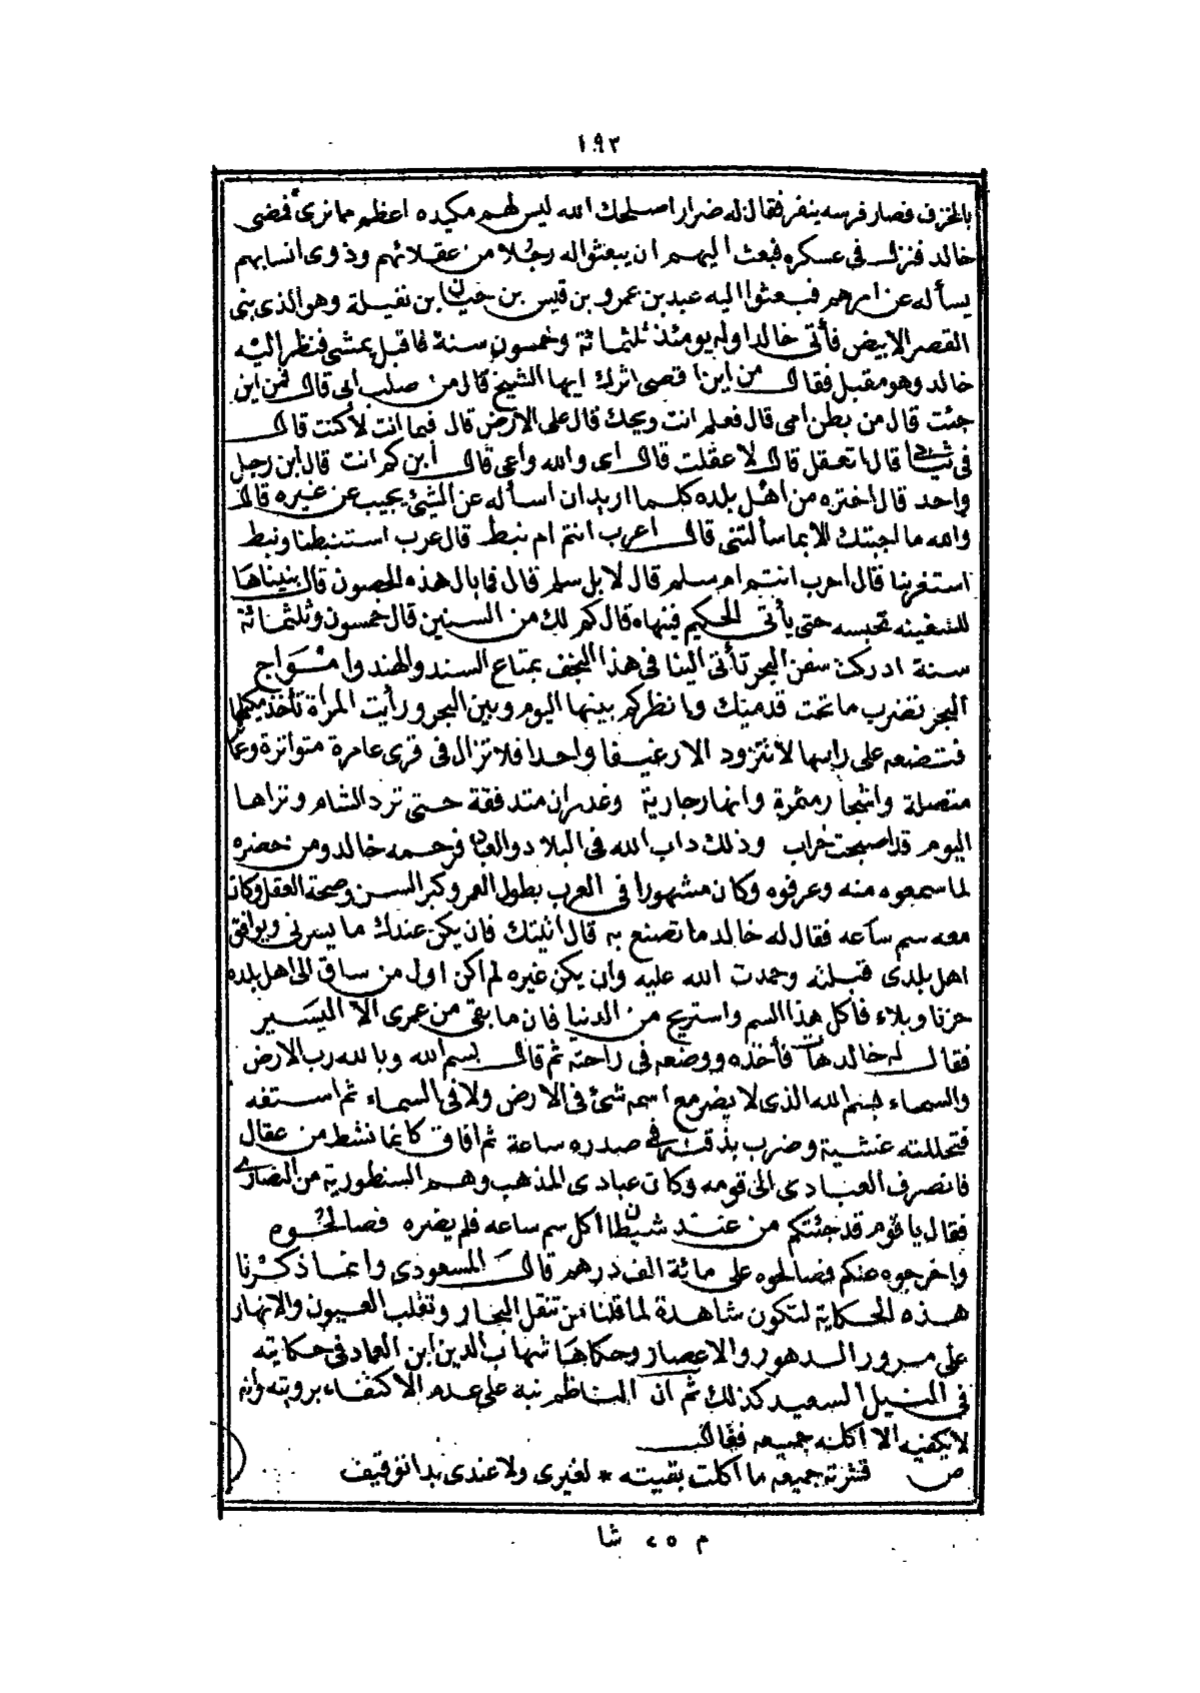 ١٩٣
بالخزف فصار فرسه ينفر فقال له ضرار اصلحك الله ليس لهم مكيده اعظم مما نرى فمضى
خالد فنزل فى عسكره فبعث اليهم ان يبعثوا له رجلا من عقلائهم وذوى انسابهم
يسأله عن امرهم فبعثوا اليه عبد بن عمرو بن قيس بن حيان بن نفيلة وهو الذى بنى
القصر الابيض فأتى خالدا وله يومئذ ثلثمائة وخمسون سنة فاقبل يمشى فنظر اليه
خالد وهو مقبل فقال من اين اقصى اثرك ايها الشيخ قال من صلب ابى قال فمن اين
جئت قال من بطن امى قال فعلم انت ويحك قال على الارض قال فيما انت لا كنت قال
فى ثيابى قال اتعقل قال لا عقلت قال اى والله واعى قال ابن كم انت قال ابن رجل
واحد قال اختره من اهل بلده كلما اريد ان اسأله عن الشئ يجيب عن غيره قال
والله ما اجبتك الا بما سألتنى قال اعرب انتم ام نبط قال عرب استنبطنا ونبط
استغربنا قال احرب انتم ام سلم قال لا بل سلم قال فما بال هذه الحصون قال بنيناها
للسفينه تحبسه حتى يأتى الحكيم فينهاه قال كم لك من السنين قال خمسون وثلثمائة
سنة ادركت سفن البحر تأتى الينا فى هذا النجف بمتاع السند والهند وامواج
البحر تضرب ما تحت قدميك وانظر كم بينها اليوم وبين البحر ورأيت المراة تأخذ مكيلها
فتضعه على راسها لا تتزود الا رغيفا واحدا فلا تزال فى قرى عامرة متواترة وعما
متصلة واشجار مثمرة وانهار جارية وغدران متدفقة حتى ترد الشام وتراها
اليوم قد اصبحت خراب وذلك داب الله فى البلاد والعباد فرحمه خالد ومن حضره
لما سمعوه منه وعرفوه وكان مشهورا فى العرب بطول العمر وكبر السن وصحة العقل وكان
معه سم ساعه فقال له خالد ما تصنع به قال اتيتك فان يكن عندك ما يسرنى ويوافق
اهل بلدى قبلته وحمدت الله عليه وان يكن غيره لم اكن اول من ساق الى اهل بلده
حزنا وبلاء فاكل هذا السم واستريح من الدنيا فان ما بقى من عمرى الا اليسير
فقال له خالد هات فأخذه ووضعه فى راحته ثم قال بسم الله وبالله رب الارض
والسماء بسم الله الذى لا يضر مع اسمه شئ فى الارض ولا فى السماء ثم استفه
فتجللته غشية وضرب بذقنه فى صدره ساعة ثم افاق كانما نشط من عقال
فانصرف العبادى الى قومه وكان عبادى المذهب وهم السنطورية من النصارى
فقال يا قوم قد جئتكم من عند شيطان اكل سم ساعه فلم يضره فصالحوه
واخرجوه عنكم فصالحوه على مائة الف درهم قال المسعودى وانما ذكرنا
هذه الحكاية لتكون شاهدة لما قلنا من تنقل البحار وتقلب العيون والانهار
على مرور الدهور والاعصار وحكاها شهاب الدين ابن العماد فى حكايته
فى النيل السعيد كذلك ثم ان الناظم نبه على عدم الاكتفاء برويته وانه
لا يكفيه الا اكله جميعه فقال
ص قشرته جميعه ما اكلت بقيته * لغيرى ولا عندى بدا توقيف
م ٢٥ شا